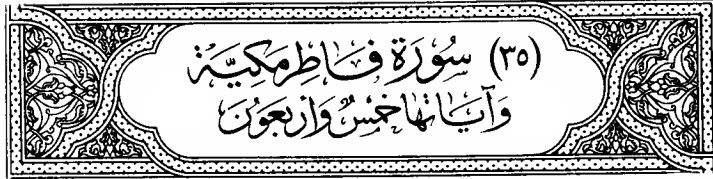 (٣٥) سُورَة فَاطِر مَكيَّة
وَآيَاتهَا خَمْسٌ وَأَرْبَعُونَ